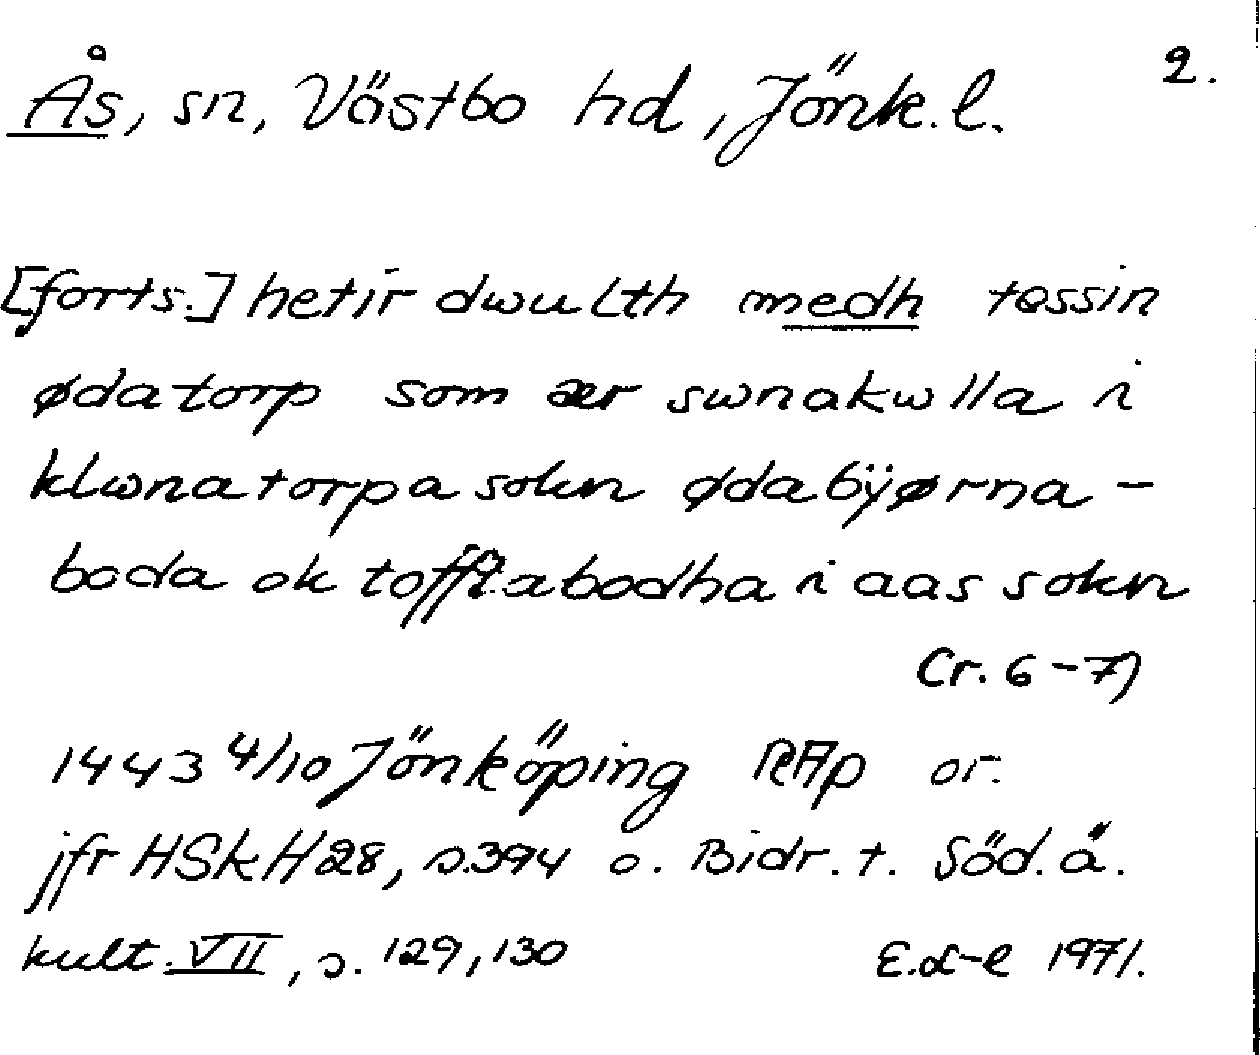 Ås, sn, Västbo hd, Jönk. l. 2.
[forts.] hetir dwulth medh tessin
ødatorp som ær swnakwlla i
klwnatorpa sokn ødabÿørna-
boda ok tofftabodha i aas sokn
Cr. 6-7)
1443 4/10 Jönköping RAp or.
jfr HSkH 28, s. 394 o. Bidr. t. Söd. å.
kult. VII, s. 129, 130 E. 1971.